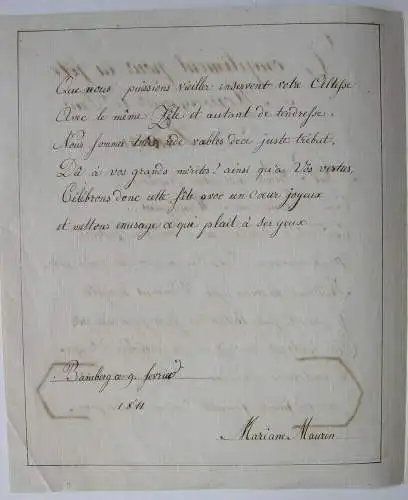 Que nous puissions vieiller inservent votre Celtesse
Avec le même Zéle et autant de tendresse.
Nous sommes bien rede vables dece juste tribut.
Dû à vos grands mérites! ainsi qu'à Vos vertus,
Célébrons donc cette fête avec un Cœur joyeux
et mettons enusage ce qui plait à ses yeux
Bamberg ce 9. fevrier
1811
Mariane Maurin